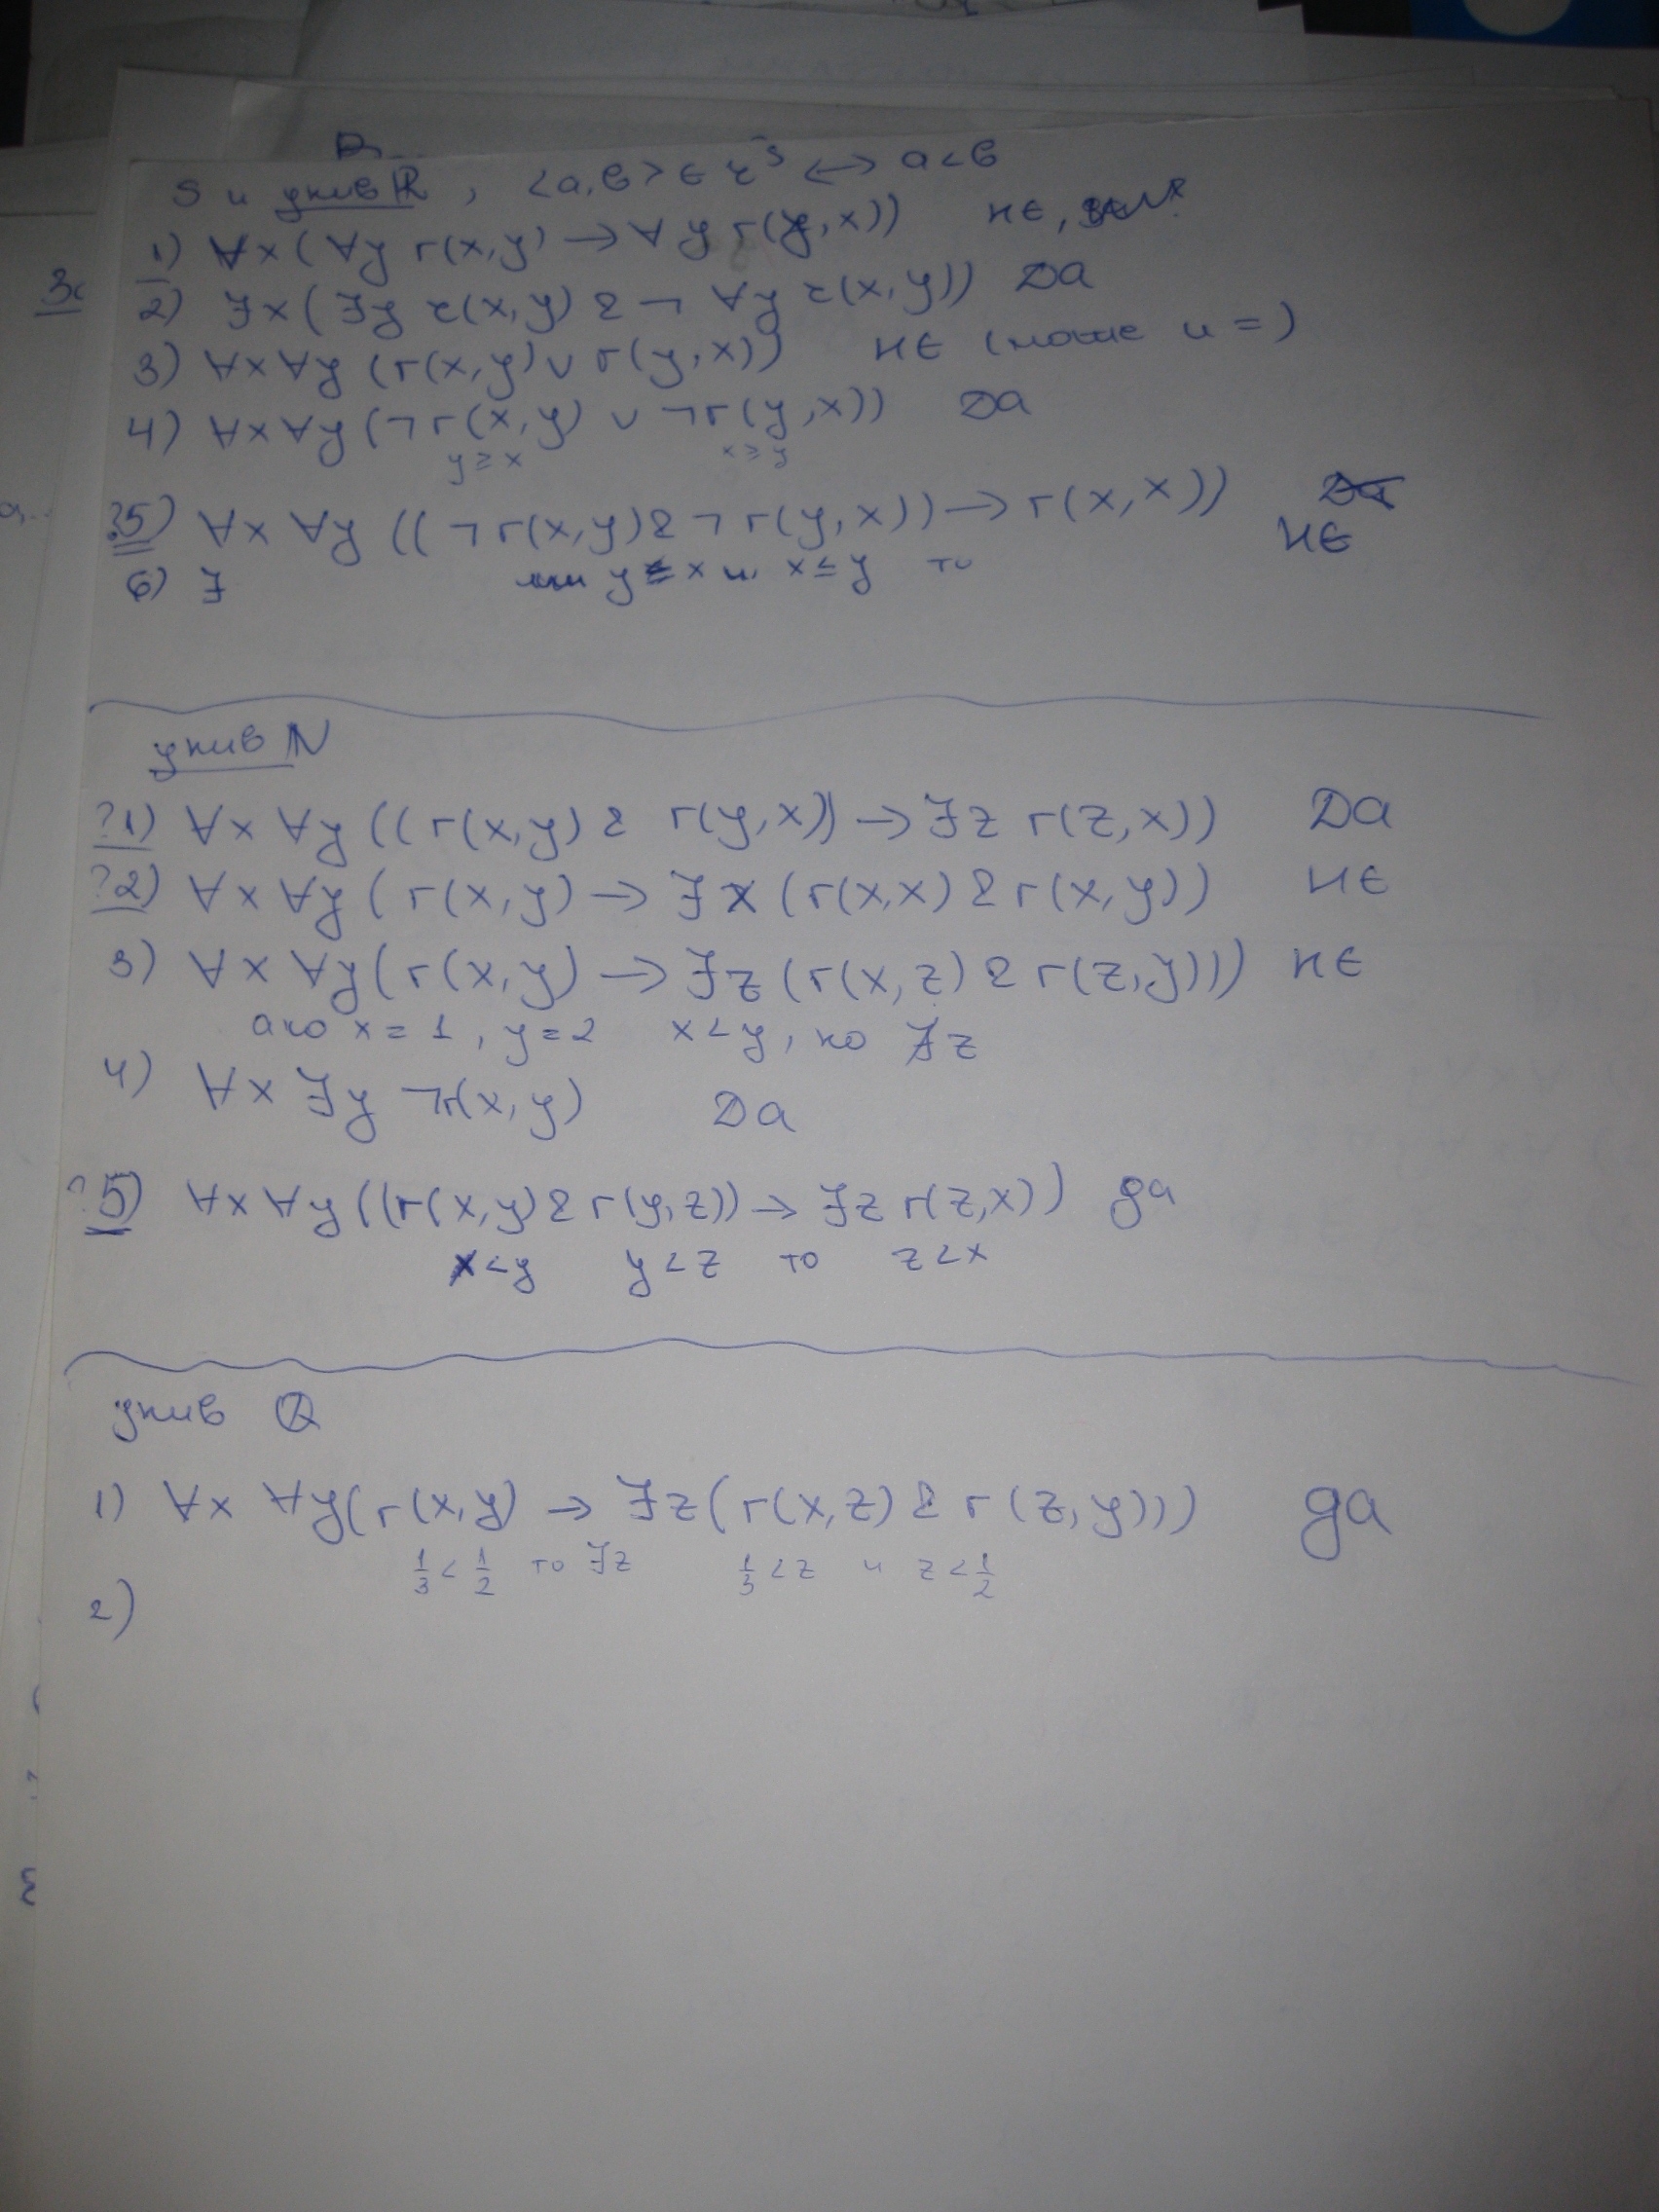 S и унив ℝ, <a,b> ∈ r^S ⟷ a<b
1) ∀x(∀y r(x,y) → ∀y r(y,x)) НЕ,
2) ∃x(∃y r(x,y) & ¬∀y r(x,y)) Да
3) ∀x∀y (r(x,y) ∨ r(y,x)) НЕ (може и =)
4) ∀x∀y (¬r(x,y) ∨ ¬r(y,x)) Да
y≥x x≥y
?5) ∀x ∀y ((¬r(x,y) & ¬r(y,x)) → r(x,x)) НЕ
y≤x и x≤y то
6) ∃
унив ℕ
?1) ∀x ∀y ((r(x,y) & r(y,x)) → ∃z r(z,x)) Да
?2) ∀x ∀y (r(x,y) → ∃x (r(x,x) & r(x,y)) НЕ
3) ∀x ∀y (r(x,y) → ∃z (r(x,z) & r(z,y))) НЕ
ако x=1, y=2 x<y, но ∄z
4) ∀x ∃y ¬r(x,y) Да
?5) ∀x ∀y ((r(x,y) & r(y,z)) → ∃z r(z,x)) да
x<y y<z то z<x
унив ℚ
1) ∀x ∀y(r(x,y) → ∃z(r(x,z) & r(z,y))) да
1/3 < 1/2 то ∃z 1/3 < z и z < 1/2
2)